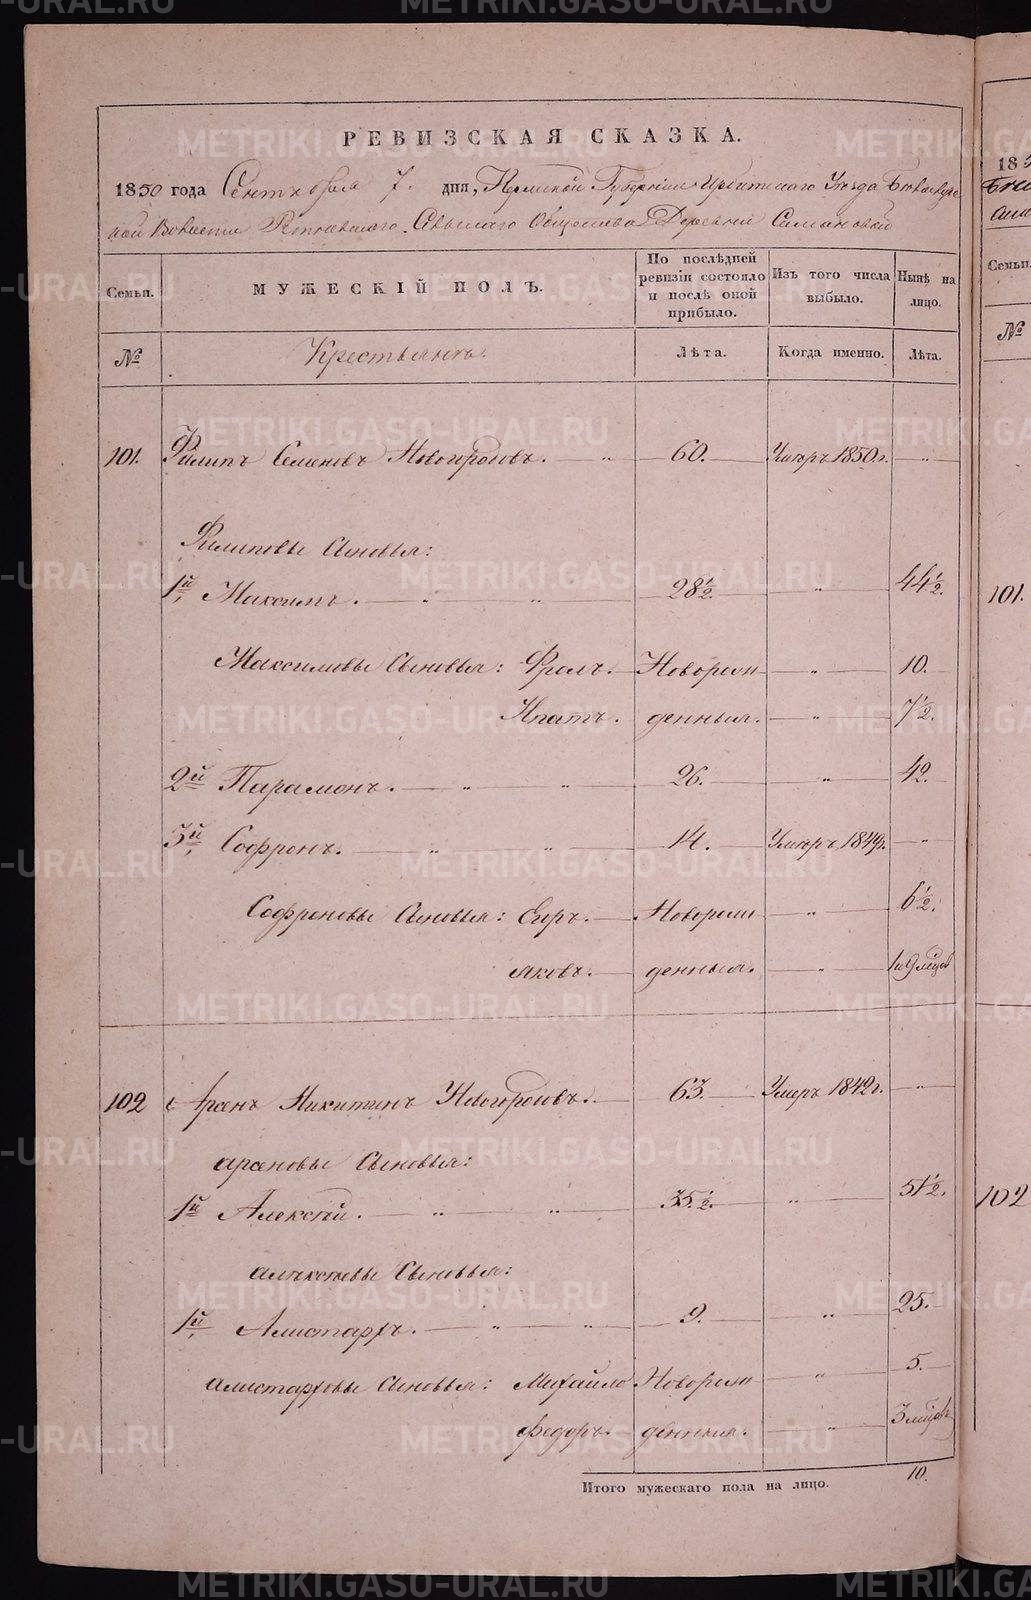 РЕВИЗСКАЯ СКАЗКА.
1850 года Сентября 7. дня, Пермской Губерніи Ирбитскаго Уѣзда
Волости Сельскаго Общества Деревни
Семьи. МУЖЕСКІЙ ПОЛЪ. По послѣдней ревизіи состояло и послѣ оной прибыло. Изъ того числа выбыло. Нынѣ на лицо.
№ Крестьянъ. Лѣта. Когда именно. Лѣта.
101. Филипъ Семеновъ Новогородовъ. — „ 60. Умеръ 1850 г. „
Филиповы Сыновья:
1й Максимъ. — „ „ 28½. „ 44½.
Максимовы Сыновья: Фролъ. Новорож „ 10.
Ипатъ. денныя. „ 7½.
2й Парамонъ. — „ „ 26. „ 42.
3й Софронъ. „ „ 14. Умеръ 1849 г. „
Софроновы Сыновья: Егоръ. Новорож „ 6½.
Яковъ. денныя. „ 1 и 9 мѣсяцовъ
102 Арсенъ Никитинъ Новогородовъ. 63. Умеръ 1842 г. „
арсеновы Сыновья:
1й Алексѣй. „ „ 35½. „ 51½.
алексѣевы Сыновья:
1й Алистархъ. „ „ 9. „ 25.
алистарховы Сыновья: Михайло Новорож „ 5.
Федоръ. денныя. „ 3 мѣсяцовъ
Итого мужескаго пола на лицо. 10.
185
Семьи.
№
101.
102
METRIKI.GASO-URAL.RU